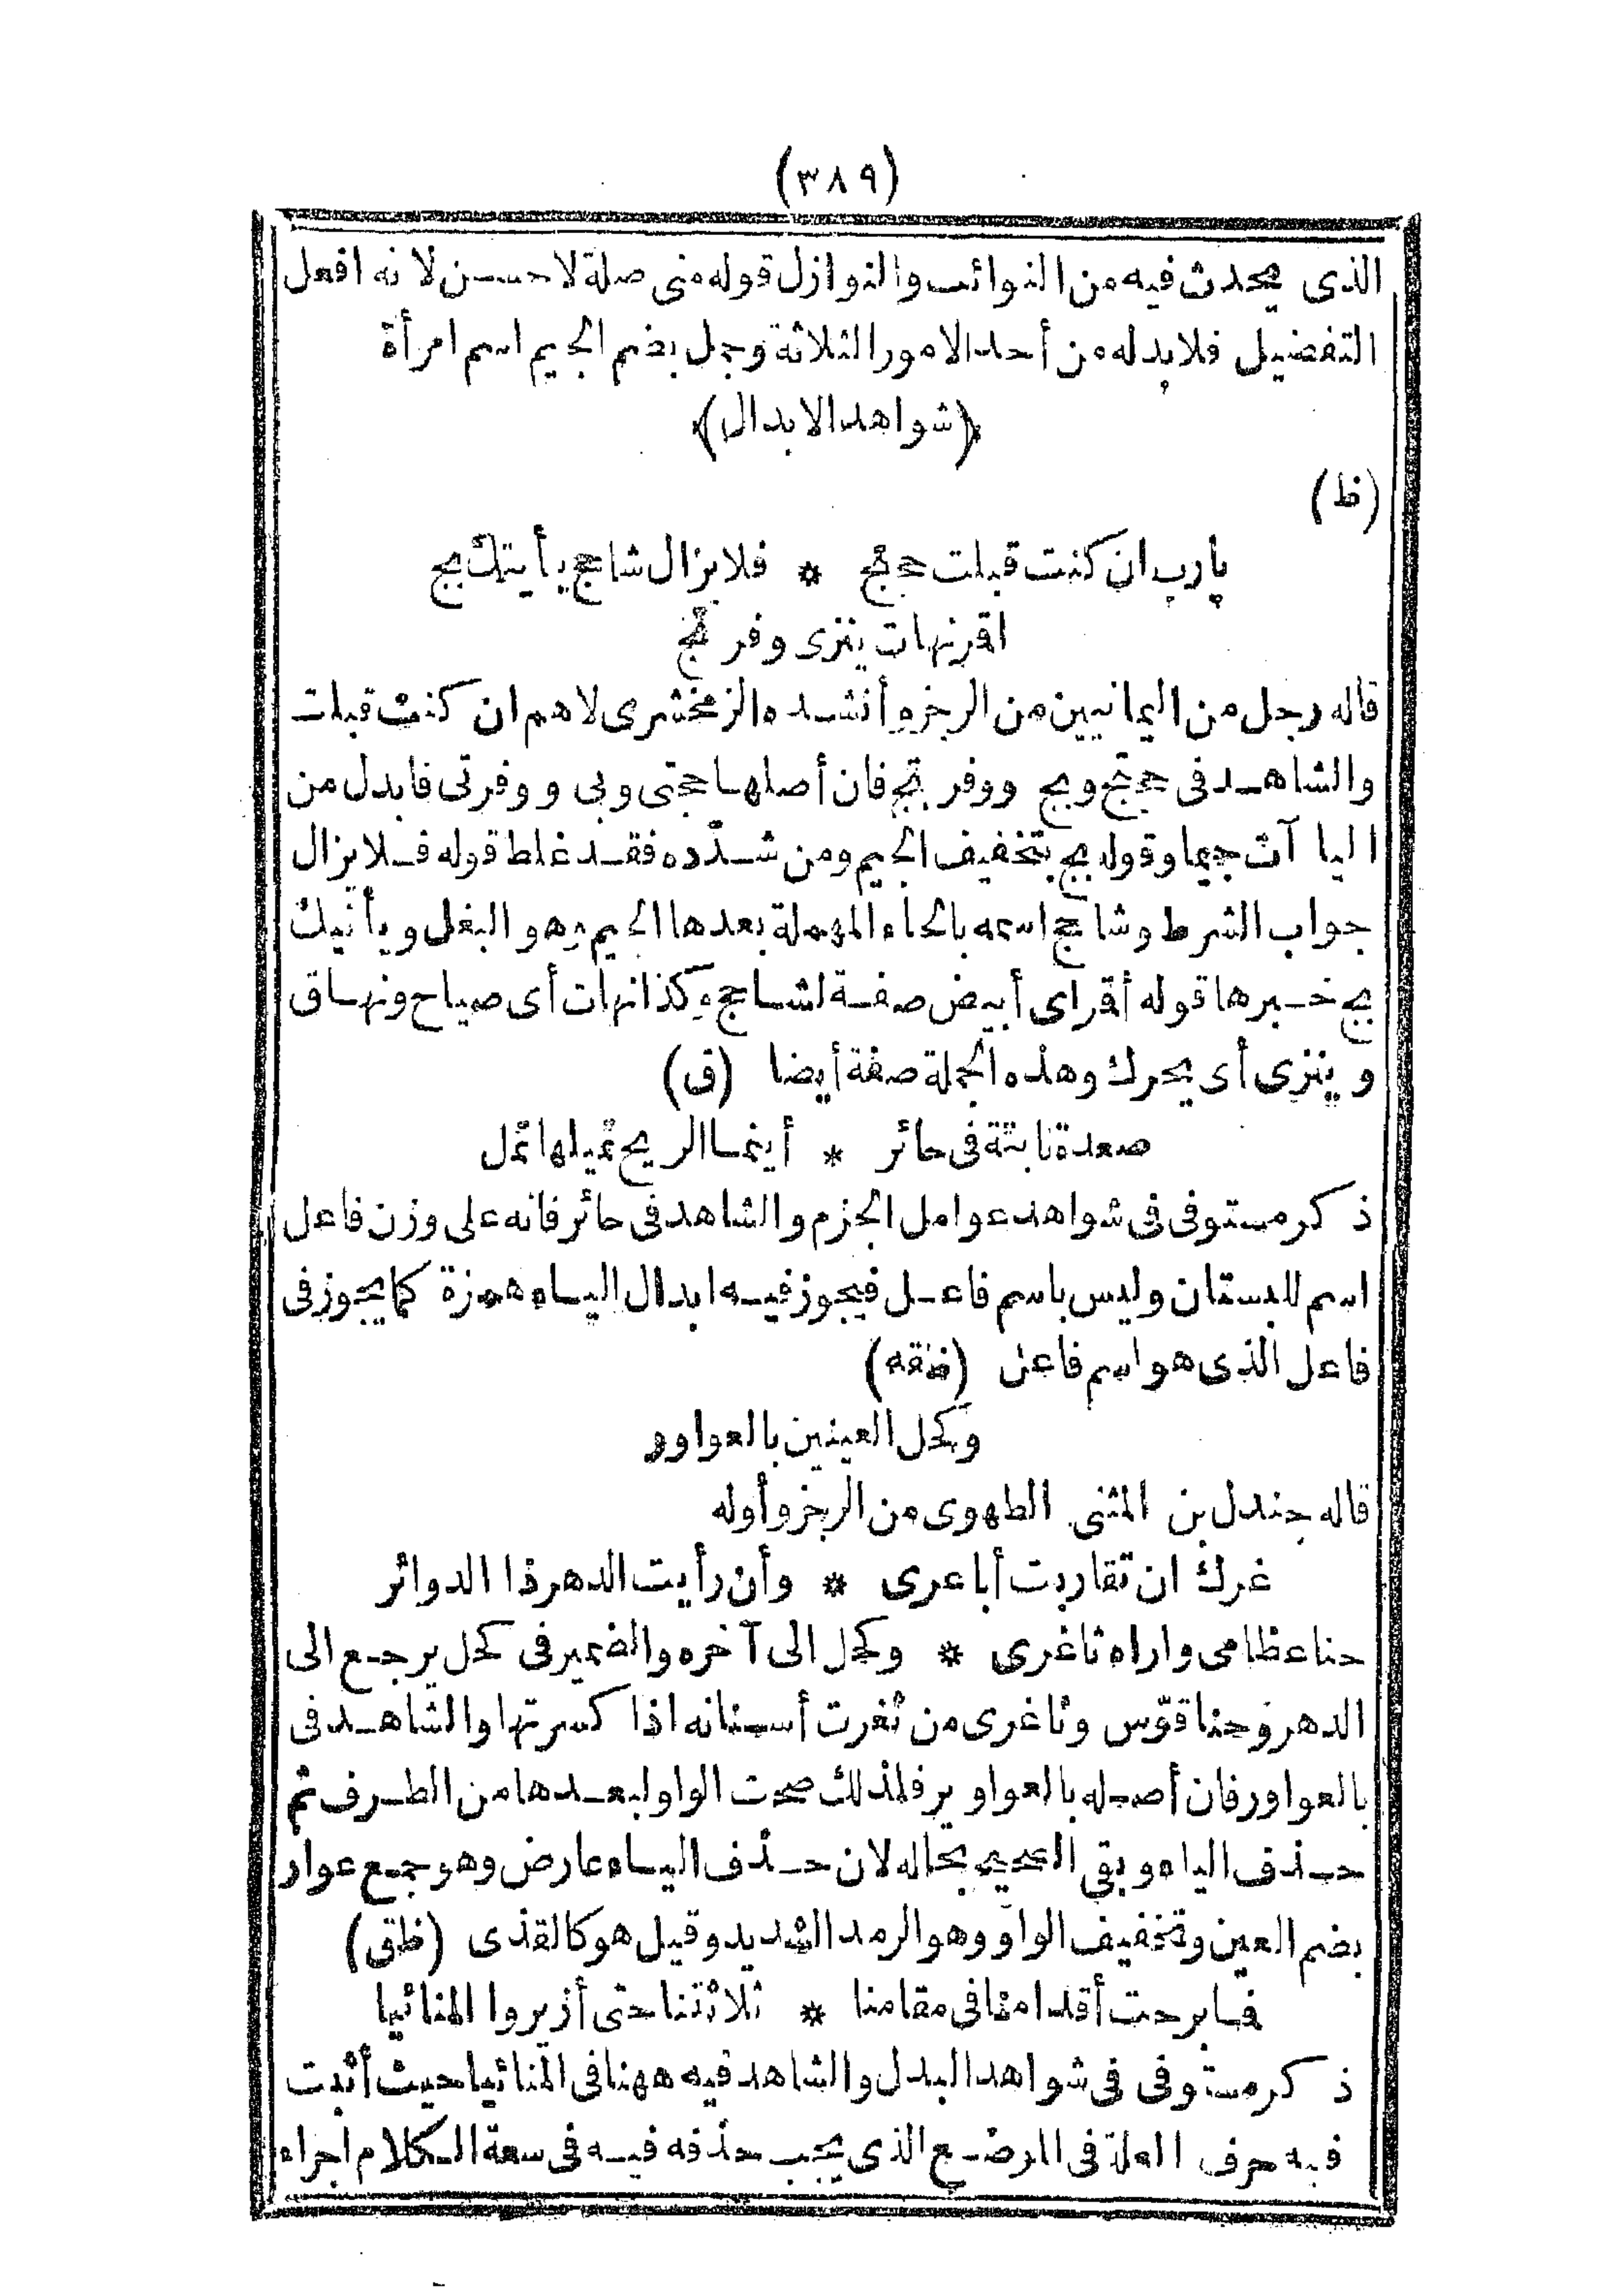 (٣٨٩)
الذى يحدث فيه من النوائب والنوازل قوله منى صلة لاحسن لانه افعل
التفضيل فلابد له من أحد الامور الثلاثة وجمل بضم الجيم اسم امرأة
﴿شواهد الابدال﴾
(ظ)
يارب ان كنت قبلت حجتج * فلا يزال شاحج يأتيك بج
اقرنهات ينزى وفرتج
قاله رجل من اليمانيين من الرجز وأنشده الزمخشرى لاهم ان كنت قبلت
والشاهد فى حجتج وبج ووفرتج فان أصلها حجتى وبى ووفرتى فابدل من
اليا آت جيما وقوله بج بتخفيف الجيم ومن شدّده فقد غلط قوله فلا يزال
جواب الشرط وشاحج اسمه بالحاء المهملة بعدها الجيم وهو البغل ويأتيك
بج خبرها قوله أقراى أبيض صفة لشاحج وكذا نهات أى صياح ونهاق
وينزى أى يحرك وهذه الجملة صفة أيضا (ق)
صعدة نابتة فى حائر * أينما الريح تميلها تمل
ذكر مستوفى فى شواهد عوامل الجزم والشاهد فى حائر فانه على وزن فاعل
اسم للبستان وليس باسم فاعل فيجوز فيه ابدال الياء همزة كما يجوز فى
فاعل الذى هو اسم فاعل (ظقه)
وكحل العينين بالعواور
قاله جندل بن المثنى الطهوى من الرجز وأوله
غرك ان تقاربت أباعرى * وأن رأيت الدهر ذا الدوائر
حنا عظامى واراه ثاغرى * وكحل الى آخره والضمير فى كحل يرجع الى
الدهر وحنا قوّس وثاغرى من ثغرت أسنانه اذا كسرتها والشاهد فى
بالعواور فان أصله بالعواوير فلذلك صحت الواو لبعدها من الطرف ثم
حذف الياء وبقى الصحيح بحاله لان حذف الياء عارض وهو جمع عوار
بضم العين وتخفيف الواو وهو الرمد الشديد وقيل هو كالقذى (ظق)
فما برحت أقدامنا فى مقامنا * ثلاثتنا حتى أزيروا المنائيا
ذكر مستوفى فى شواهد البدل والشاهد فيه ههنا فى المنائيا حيث أثبت
فيه حرف العلة فى الموضع الذى يجب حذفه فيه فى سعة الكلام اجراء